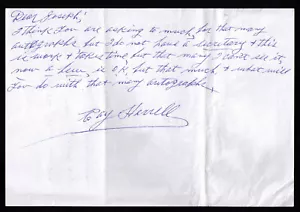 Dear Joseph:
I think you are asking to much for that many
autographs but I do not have a secretary & this
is work & takes time but that many I can't see it,
now a few is O.K. but that much & what will
you do with that many autographs.
Ray Harrell